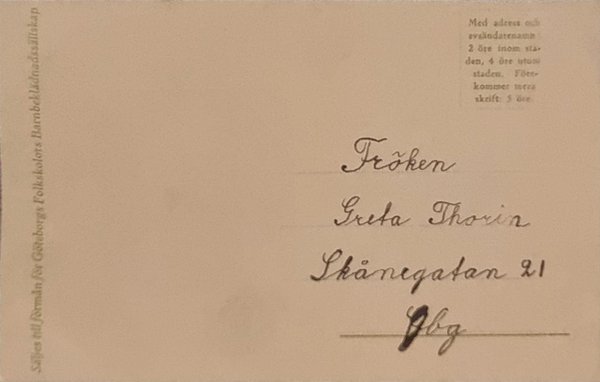 Säljes till förmån för Göteborgs Folkskolors Barnbeklädnadssällskap
Med adress och
avsändarenamn
2 öre inom sta-
den, 4 öre utom
staden. Före-
kommer mera
skrift: 5 öre.
Fröken
Greta Thorin
Skånegatan 21
Gbg